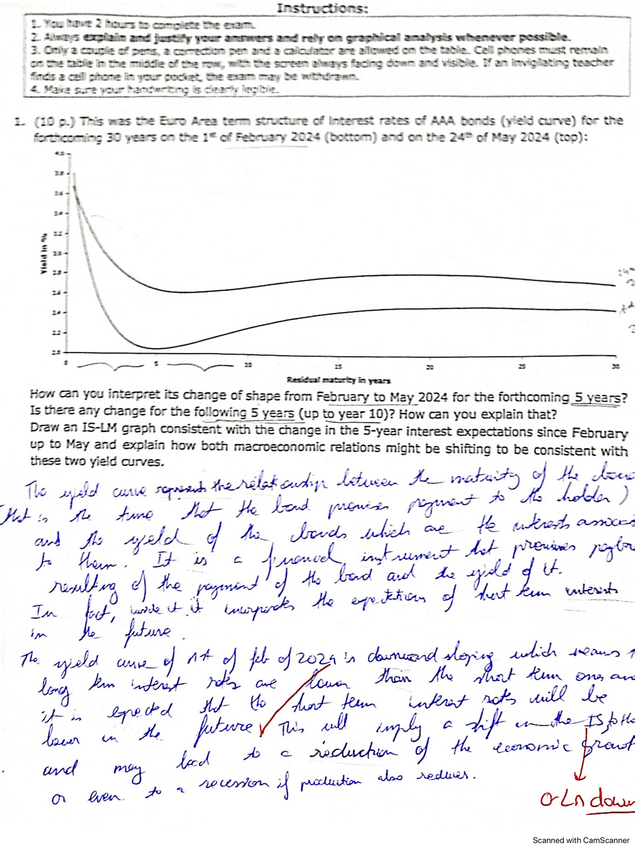 Instructions:
1. You have 2 hours to complete the exam.
2. Always explain and justify your answers and rely on graphical analysis whenever possible.
3. Only a couple of pens, a correction pen and a calculator are allowed on the table. Cell phones must remain
on the table in the middle of the row, with the screen always facing down and visible. If an invigilating teacher
finds a cell phone in your pocket, the exam may be withdrawn.
4. Make sure your handwriting is clearly legible.
1. (10 p.) This was the Euro Area term structure of interest rates of AAA bonds (yield curve) for the
forthcoming 30 years on the 1st of February 2024 (bottom) and on the 24th of May 2024 (top):
4.0
3.8
3.6
3.4
3.2
3.0
2.8
2.6
2.4
2.2
2.0
Yield in %
0 5 10 15 20 25 30
Residual maturity in years
How can you interpret its change of shape from February to May 2024 for the forthcoming 5 years?
Is there any change for the following 5 years (up to year 10)? How can you explain that?
Draw an IS-LM graph consistent with the change in the 5-year interest expectations since February
up to May and explain how both macroeconomic relations might be shifting to be consistent with
these two yield curves.
The yield curve represents the relationship between the maturity of the
that is the time that the bond promises payment to the holder)
and the yield of the bonds which are the interests
to them. It is a financial instrument that promises
resulting of the payment of the bond and the yield of it.
In fact, it incorporates the expectations of short term interests
in the future.
The yield curve of 1st of feb of 2024 is downward sloping which means
long term interest rates are lower than the short term ones and
it is expected that the short term interest rates will be
lower in the future. This will imply a shift in the IS to the
and may lead to a reduction of the economic growth
or even to a recession if production also reduces.
down
Scanned with CamScanner